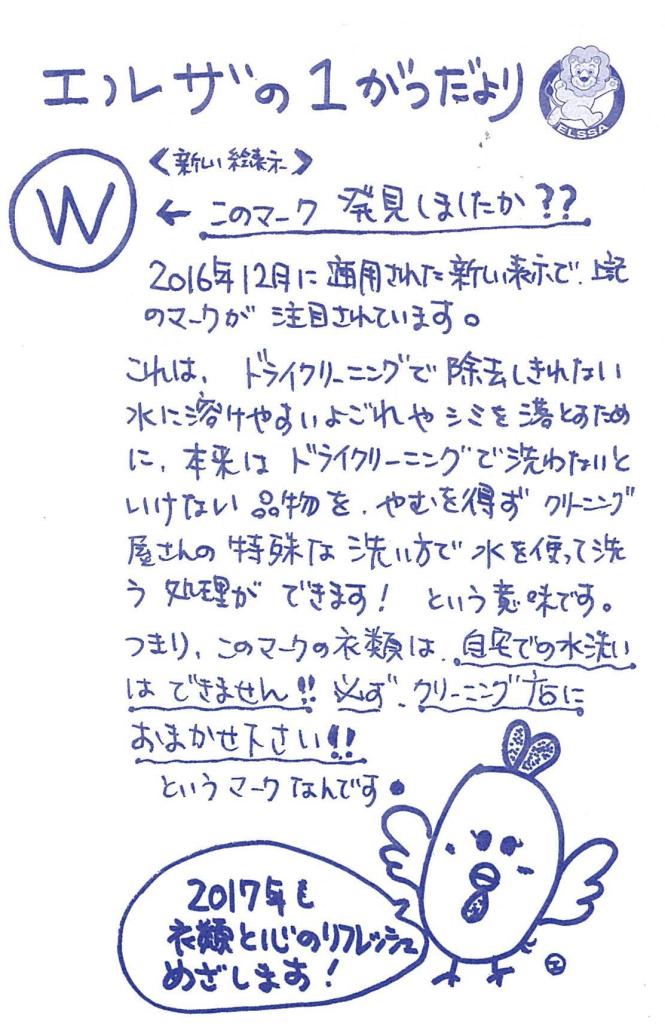 エルザの1がつだより
ELSSA
W
<新しい絵表示>
← このマーク 発見しましたか??
2016年12月に適用された新しい表示で、上記
のマークが 注目されています。
これは、ドライクリーニングで 除去しきれない
水に溶けやすいよごれや シミを 落とすため
に、本来は ドライクリーニングで洗わないと
いけない 品物を、やむを得ず クリーニング
屋さんの 特殊な 洗い方で 水を使って洗
う 処理が できます! という意味です。
つまり、このマークの衣類は、自宅での水洗い
は できません!! 必ず、クリーニング店に
おまかせ下さい!!
というマークなんです。
2017年も
衣類と心のリフレッシュ
めざします!
エ